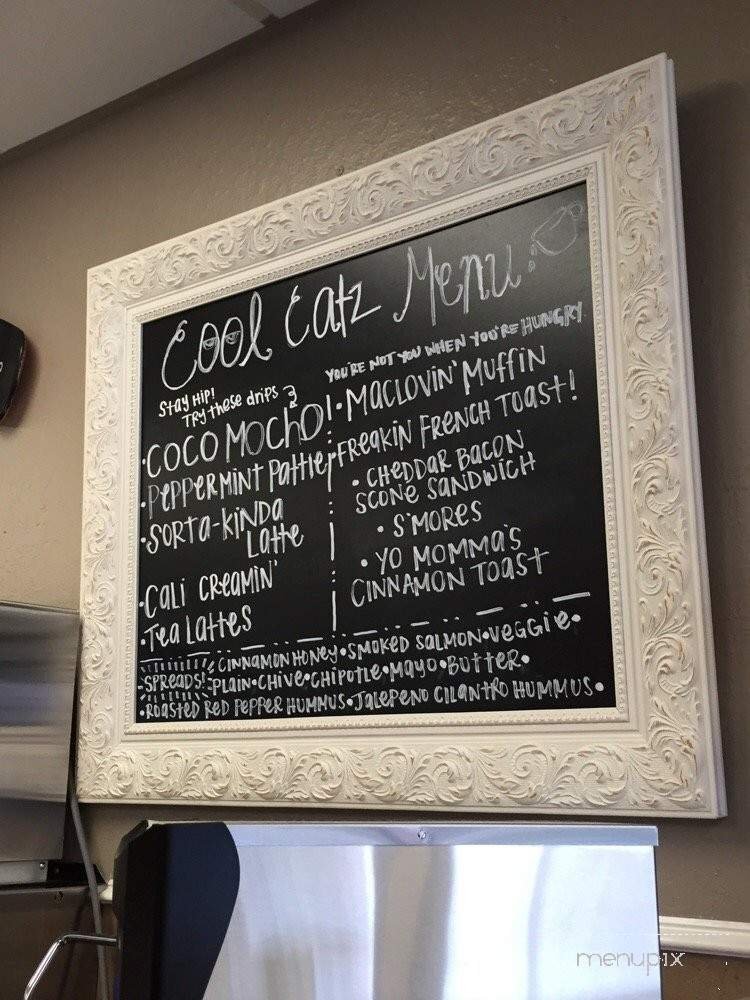 Cool Catz Menu
Stay Hip!
Try these drips
•Coco Mocho
•Peppermint Pattie
•Sorta-kinda
Latte
•Cali Creamin'
•Tea Lattes
You're not you when you're HUNGRY
•Maclovin' Muffin
•Freakin French Toast!
•Cheddar Bacon
Scone Sandwich
•S'mores
•Yo Momma's
Cinnamon Toast
Spreads!
Cinnamon Honey•Smoked Salmon•Veggie•
Plain•Chive•Chipotle•Mayo•Butter•
•Roasted Red Pepper Hummus•Jalepeno Cilantro Hummus•
menupix